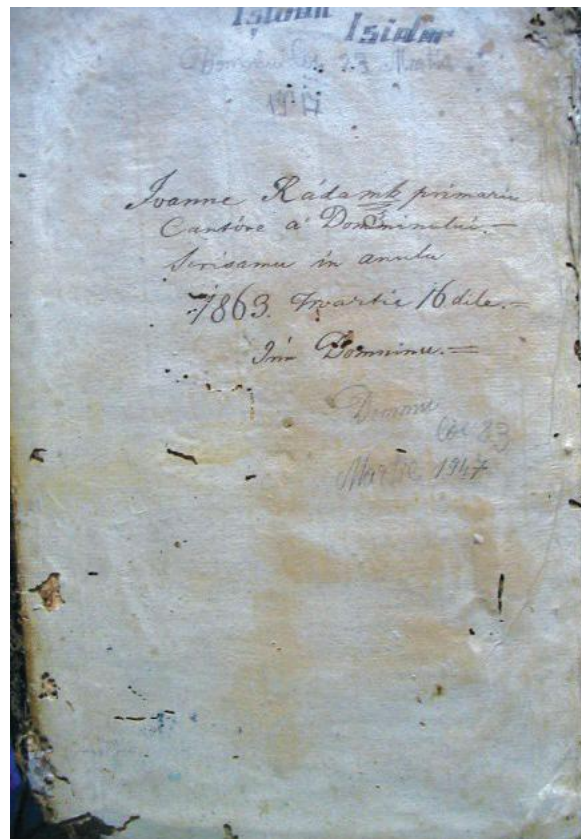 Isidor
23 Martie
Ioanne Rádamb primariu
Cantóre á Domninului.=
Scrisamu in anulu
1863. martie 16 dile.=
Inn Domninu.=
Domnin
Cor 23
Martie 1947